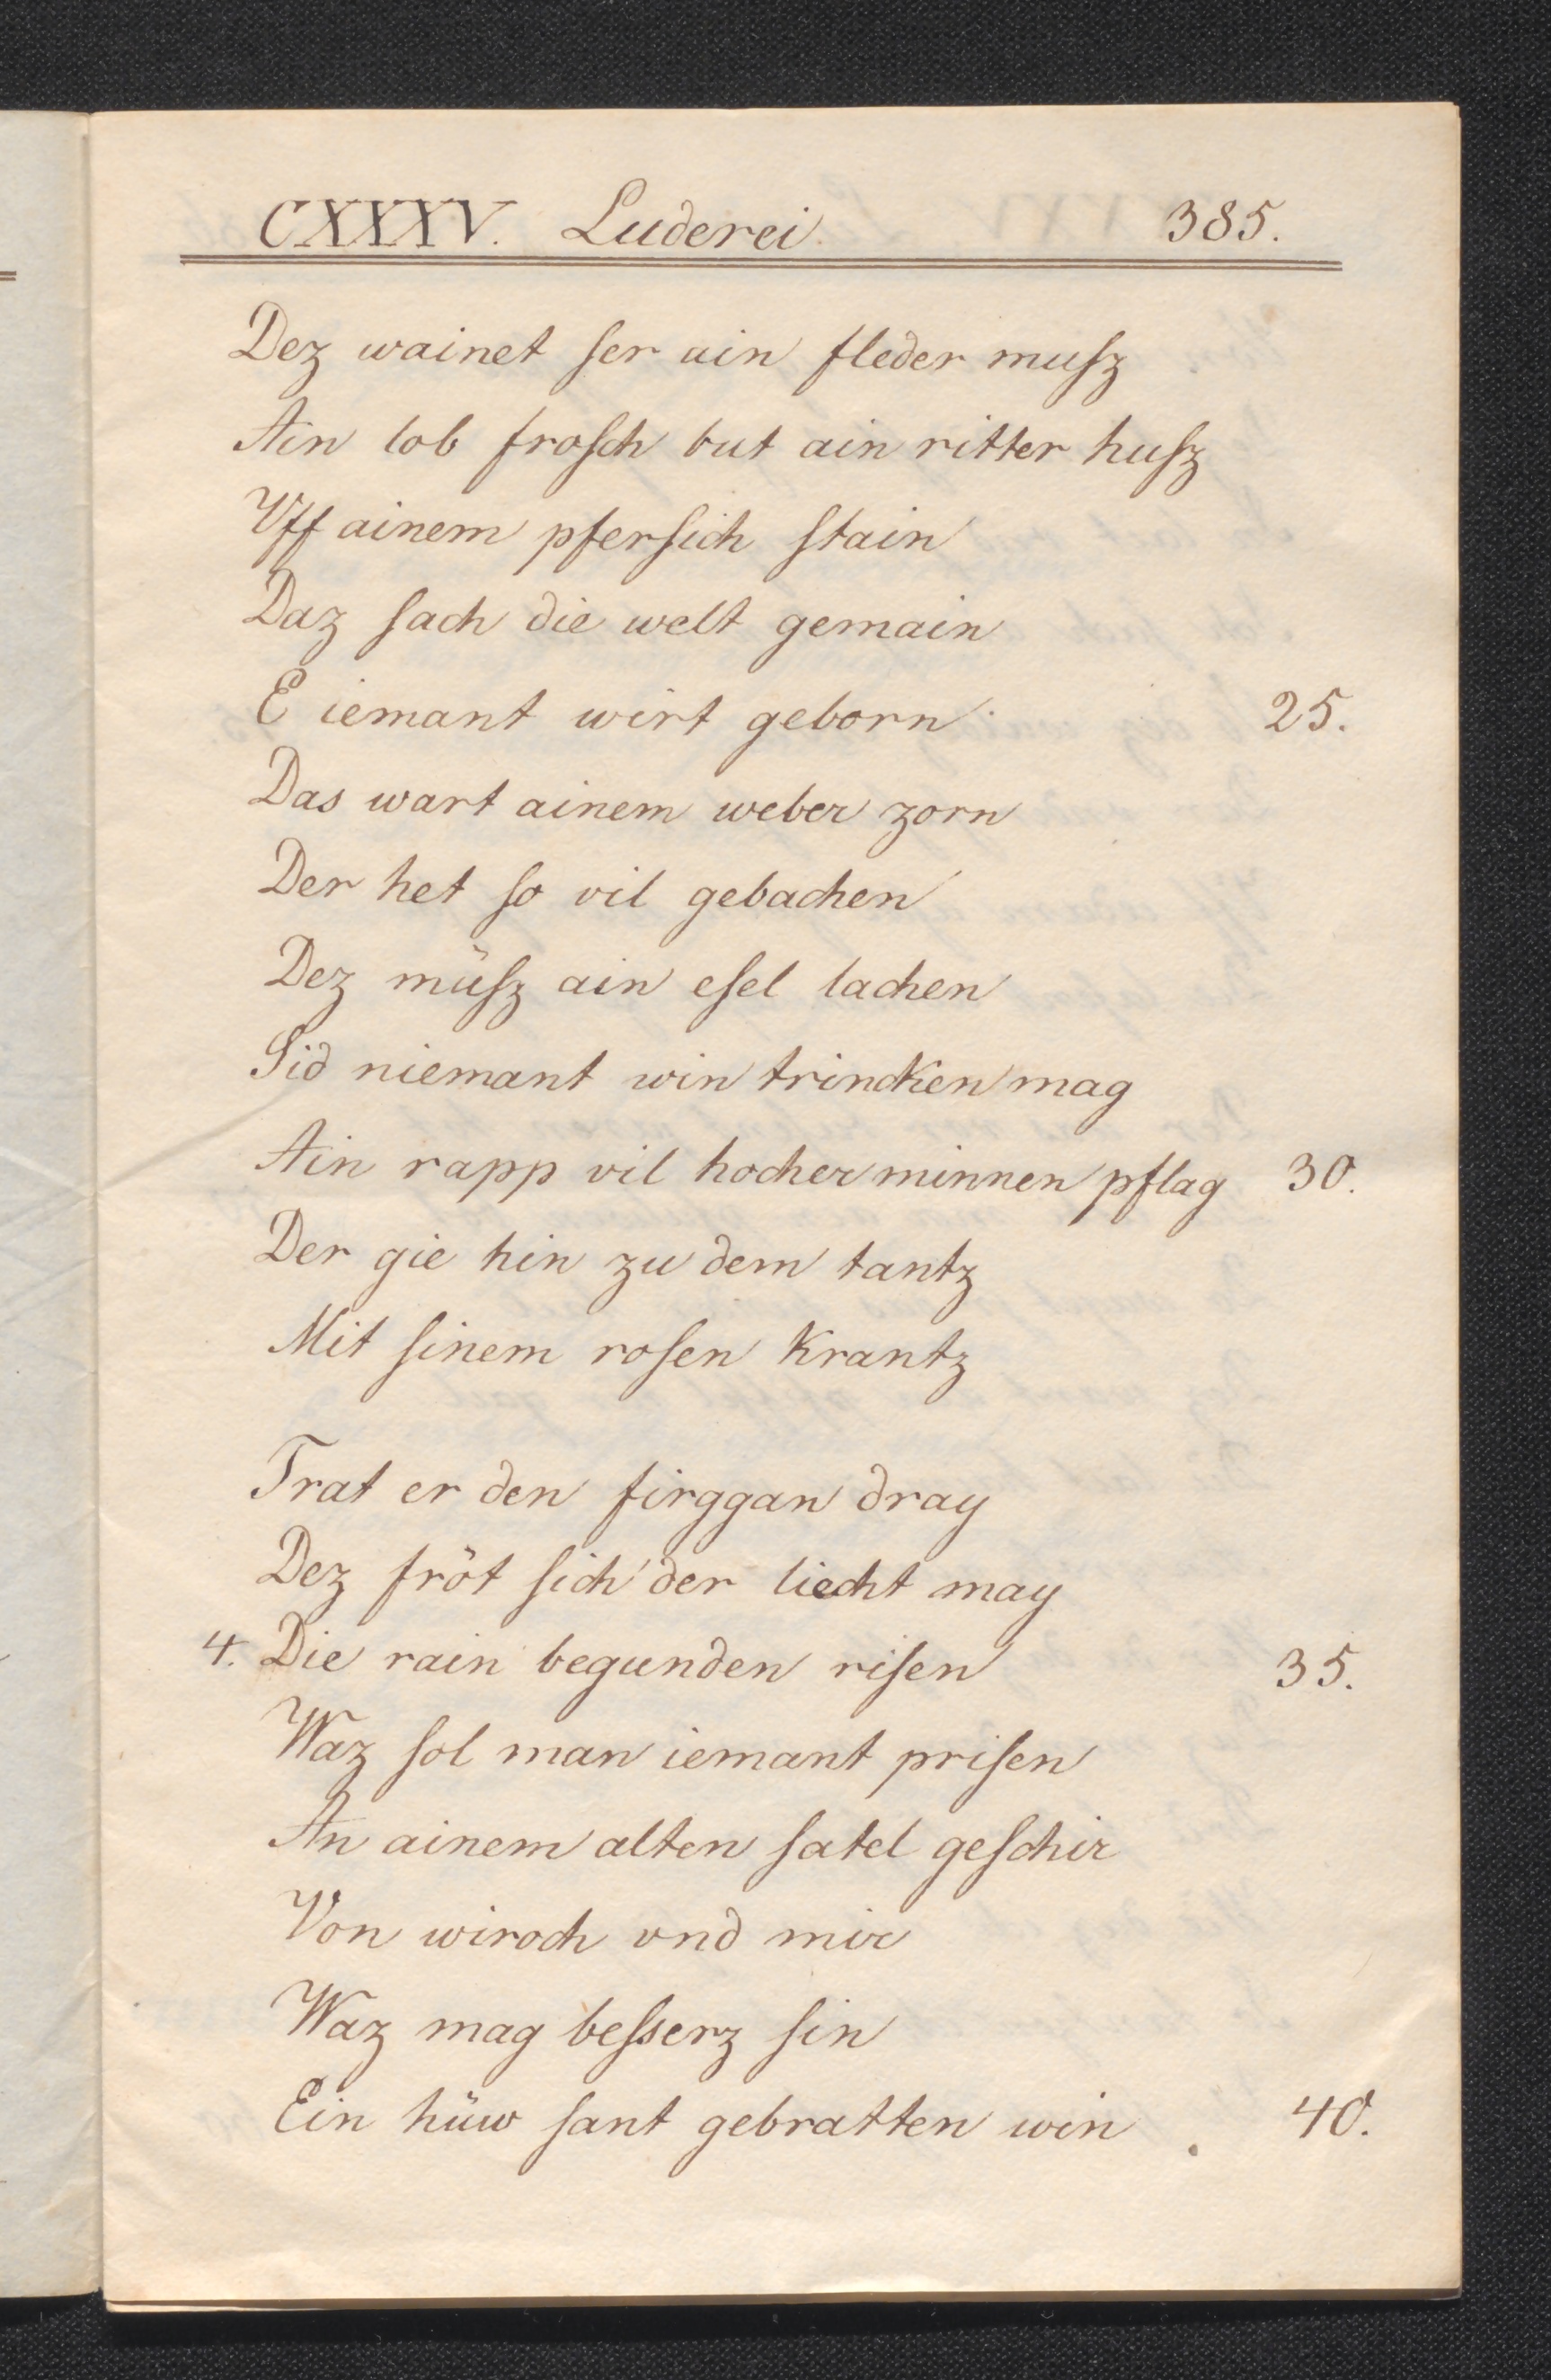 CXXXV. Luderei. 385.
Dez wainet ſer ain fleder muſz
Ain lob froſch but ain ritter huſz
Vff ainem pferſich ſtain
Daz ſach die welt gemain
E iemant wirt geborn 25.
Das wart ainem weber zorn
Der het ſo vil gebachen
Dez müſz ain eſel lachen
Sid niemant win trincken mag
Ain rapp vil hocher minnen pflag 30.
Der gie hin zu dem tantz
Mit ſinem roſen krantz
Trat er den firggan dray
Dez fröt ſich der liecht may
4. Die rain begunden riſen 35.
Waz ſol man iemant priſen
An ainem alten ſatel geſchir
Von wiroch vnd mir
Waz mag beſserz ſin
Ein hüw ſant gebratten win 40.